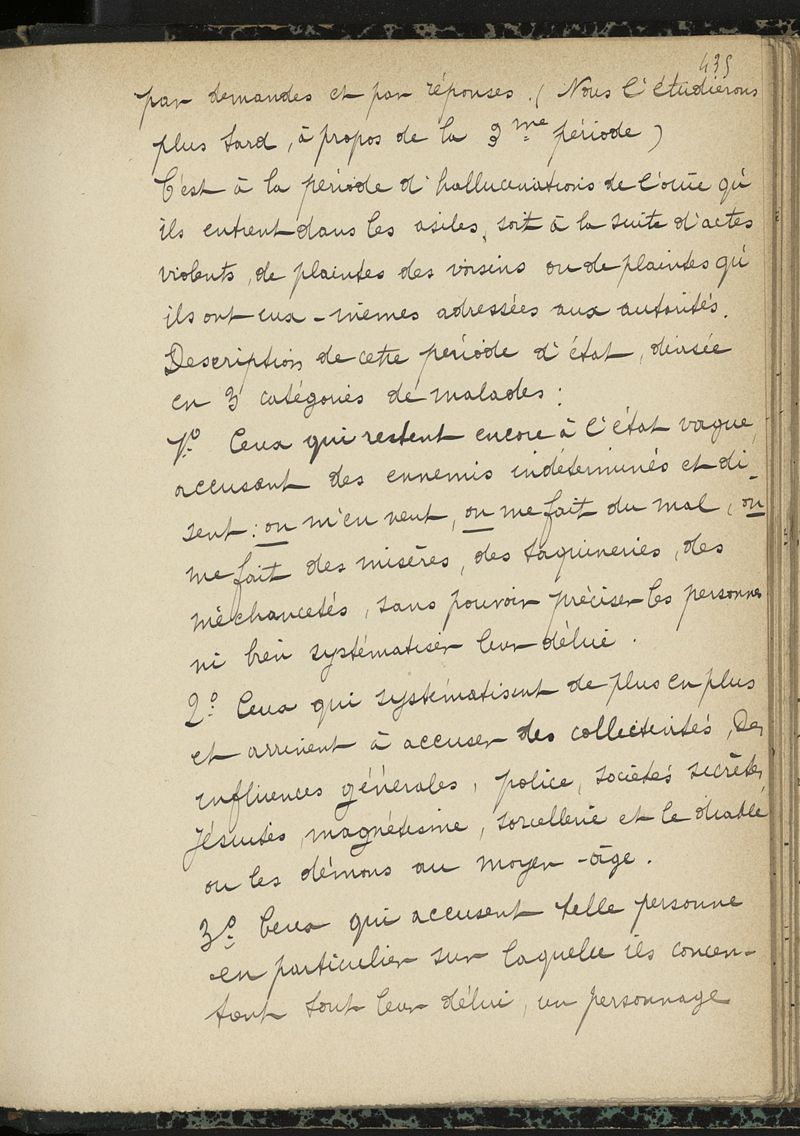 435
par demandes et par réponses. (Nous l'étudierons
plus tard, à propos de la 3me période)
C'est à la période d'hallucinations de l'ouïe qu'
ils entrent dans les asiles, soit à la suite d'actes
violents, de plaintes des voisins ou de plaintes qu'
ils ont eux-mêmes adressées aux autorités.
Description de cette période d'état, divisée
en 3 catégories de malades :
1o Ceux qui restent encore à l'état vague,
accusant des ennemis indéterminés et di-
sent : on m'en veut, on me fait du mal, on
me fait des misères, des taquineries, des
méchancetés, sans pouvoir préciser les personnes
ni bien systématiser leur délire.
2o Ceux qui systématisent de plus en plus
et arrivent à accuser des collectivités, Des
influences générales, police, sociétés secrètes,
Jésuites, magnétisme, sorcellerie et le diable
ou les démons au moyen-âge.
3o Ceux qui accusent telle personne
en particulier sur laquelle ils concen-
trent tout leur délire, un personnage